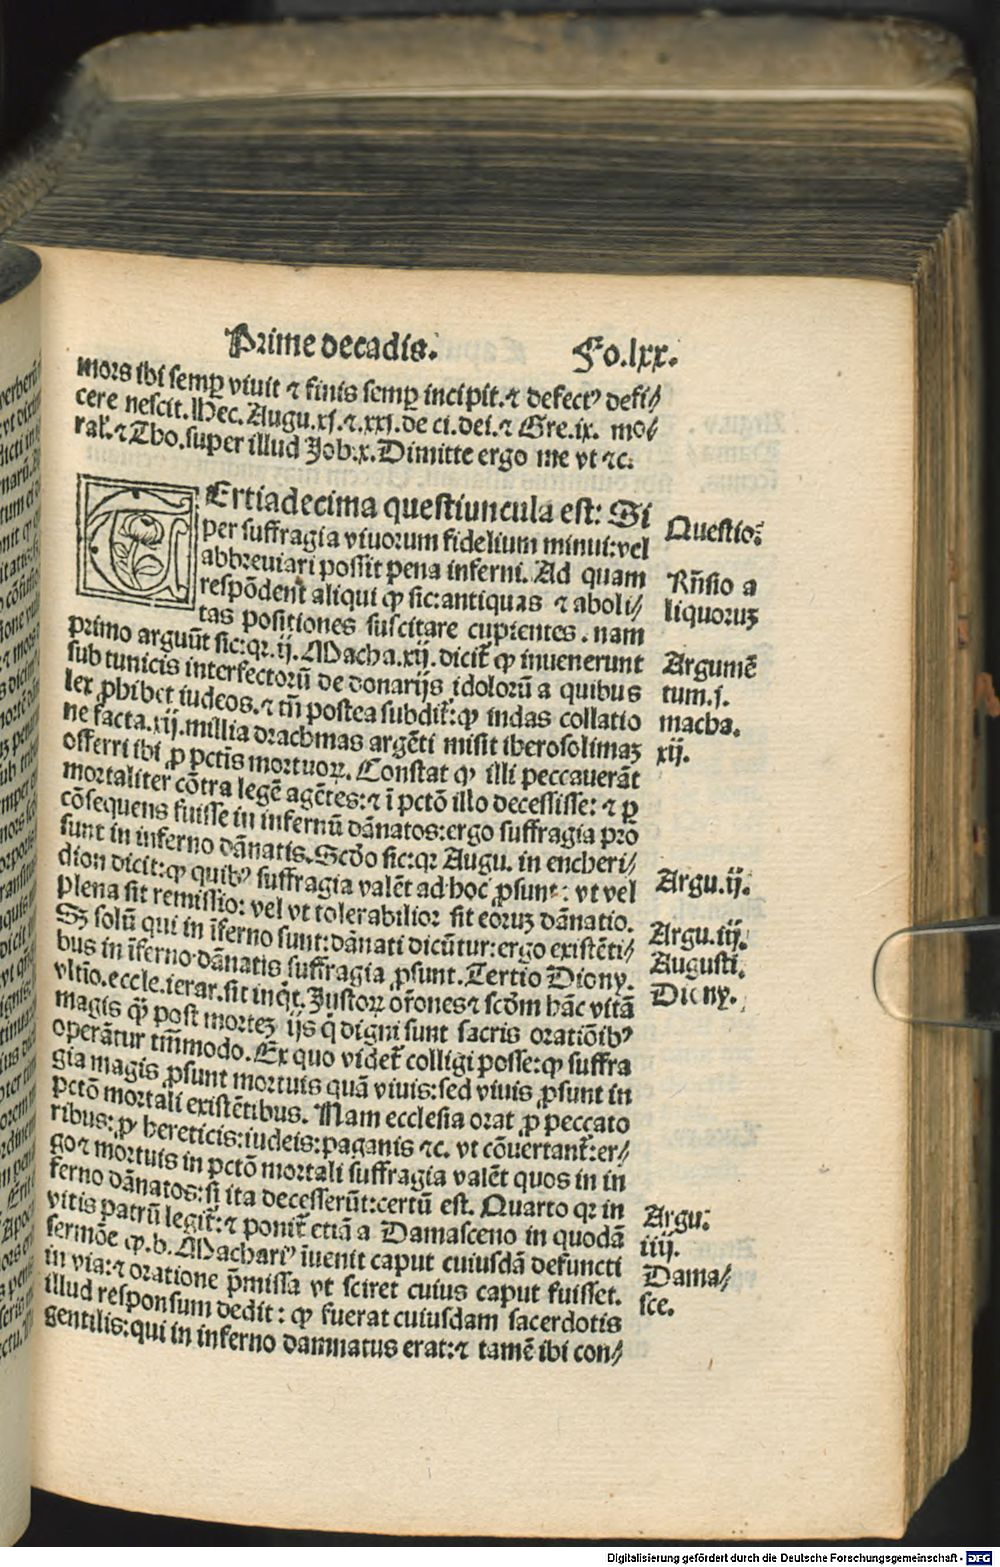 Prime decadis. Fo.lxx.
mors ibi semꝑ viuit ⁊ finis semꝑ incipit.⁊ defectꝰ defi⸗
cere nescit. Hec. Augu.xj.⁊.xxj.de ci.dei.⁊ Gre.ix. mo⸗
ral̛.⁊ Tho.super illud Job.x.Dimitte ergo me vt ⁊c.
TErtiadecima questiuncula est: Si
per suffragia viuorum fidelium minui:vel
abbreuiari possit pena inferni. Ad quam
respōdent aliqui ꝙ sic:antiquas ⁊ aboli⸗
tas positiones suscitare cupientes. nam
primo arguūt sic:qꝛ.ij.Macha.xij.dicit̄ ꝙ inuenerunt
sub tunicis interfectorū de donarijs idolorū a quibus
lex ꝓhibet iudeos.⁊ tn̄ postea subdit̄:ꝙ iudas collatio
ne facta.xij.millia drachmas argēti misit iherosolimaꝫ
offerri ibi ꝓ pctīs mortuoꝝ. Constat ꝙ illi peccauerāt
mortaliter cōtra legē agētes:⁊ ī pctō illo decessisse: ⁊ ꝑ
cōsequens fuisse in infernū dānatos:ergo suffragia pro
sunt in inferno dānatis.Scdo sic:qꝛ Augu. in encheri⸗
dion dicit:ꝙ quibꝰ suffragia valēt ad hoc ꝓsunt: vt vel
plena sit remissio: vel vt tolerabilior sit eoruꝫ dānatio.
Sꝫ solū qui in īferno sunt:dānati dicūtur:ergo existēti⸗
bus in īferno dānatis suffragia ꝓsunt. Tertio Diony.
vltio.eccle.ierar.sit inq̄t. Justoꝝ or̄ones ⁊ scdm hāc vitā
magis q̄ꝫ post morteꝫ ijs q̄ digni sunt sacris oratiōibꝰ
operātur tm̄modo. Ex quo videt̄ colligi posse:ꝙ suffra
gia magis ꝓsunt mortuis quā viuis:sed viuis ꝓsunt in
pctō mortali existētibus. Nam ecclesia orat ꝓ peccato
ribus: ꝓ hereticis:iudeis:paganis ⁊c. vt cōuertant̄:er⸗
go ⁊ mortuis in pctō mortali suffragia valēt quos in in
ferno dānatos: si ita decesserūt:certū est. Quarto qꝛ in
vitis patrū legit̄:⁊ ponit̄ etiā a Damasceno in quodā
sermōe ꝙ.b. Machariꝰ īuenit caput cuiusdā defuncti
in via:⁊ oratione p̄missa vt sciret cuius caput fuisset.
illud responsum dedit: ꝙ fuerat cuiusdam sacerdotis
gentilis:qui in inferno damnatus erat:⁊ tamē ibi con⸗
Questio:
Rn̄sio a
liquoruꝫ
Argumē
tum.j.
macha.
xij.
Argu.ij.
Argu.iij.
Augusti.
Diony.
Argu.
iiij.
Dama⸗
sce.
Digitalisierung gefördert durch die Deutsche Forschungsgemeinschaft - DFG